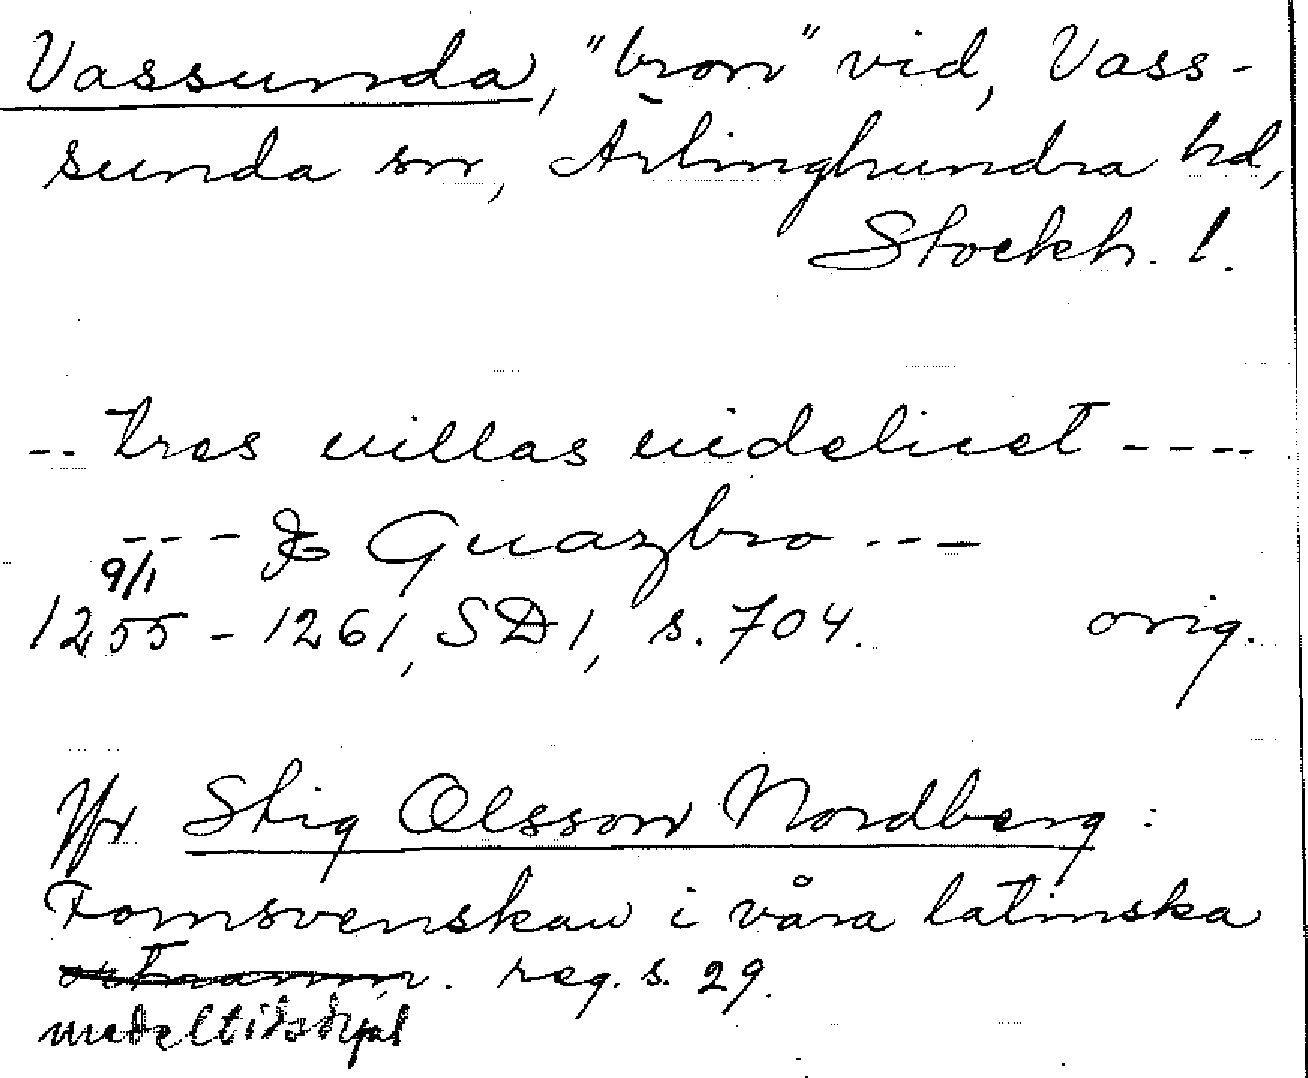 Vassunda, "bron" vid, Vass-
sunda sn, Ärlinghundra hd,
Stockh. l.
-- tres uillas uidelicet ----
--- - & Guazbro ---
9/1
1255 - 1261, SD 1, s. 704. orig.
Jfr Stig Olsson Nordberg:
Fornsvenskan i våra latinska
reg. s. 29.